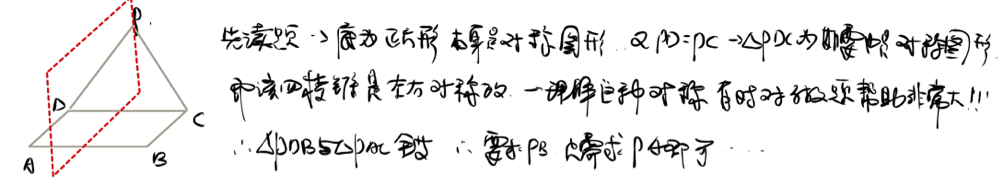 P
D
C
A
B
先读题 → 底为正方形 本身是对称图形. 又PD=PC → △PDC为 也是对称图形
即该四棱锥是左右对称的. 一理解这种对称 有时对于做题帮助非常大!!!
∴ △PDB与△PAC全等 ∴ 要求PB 只需求PA即可 ....